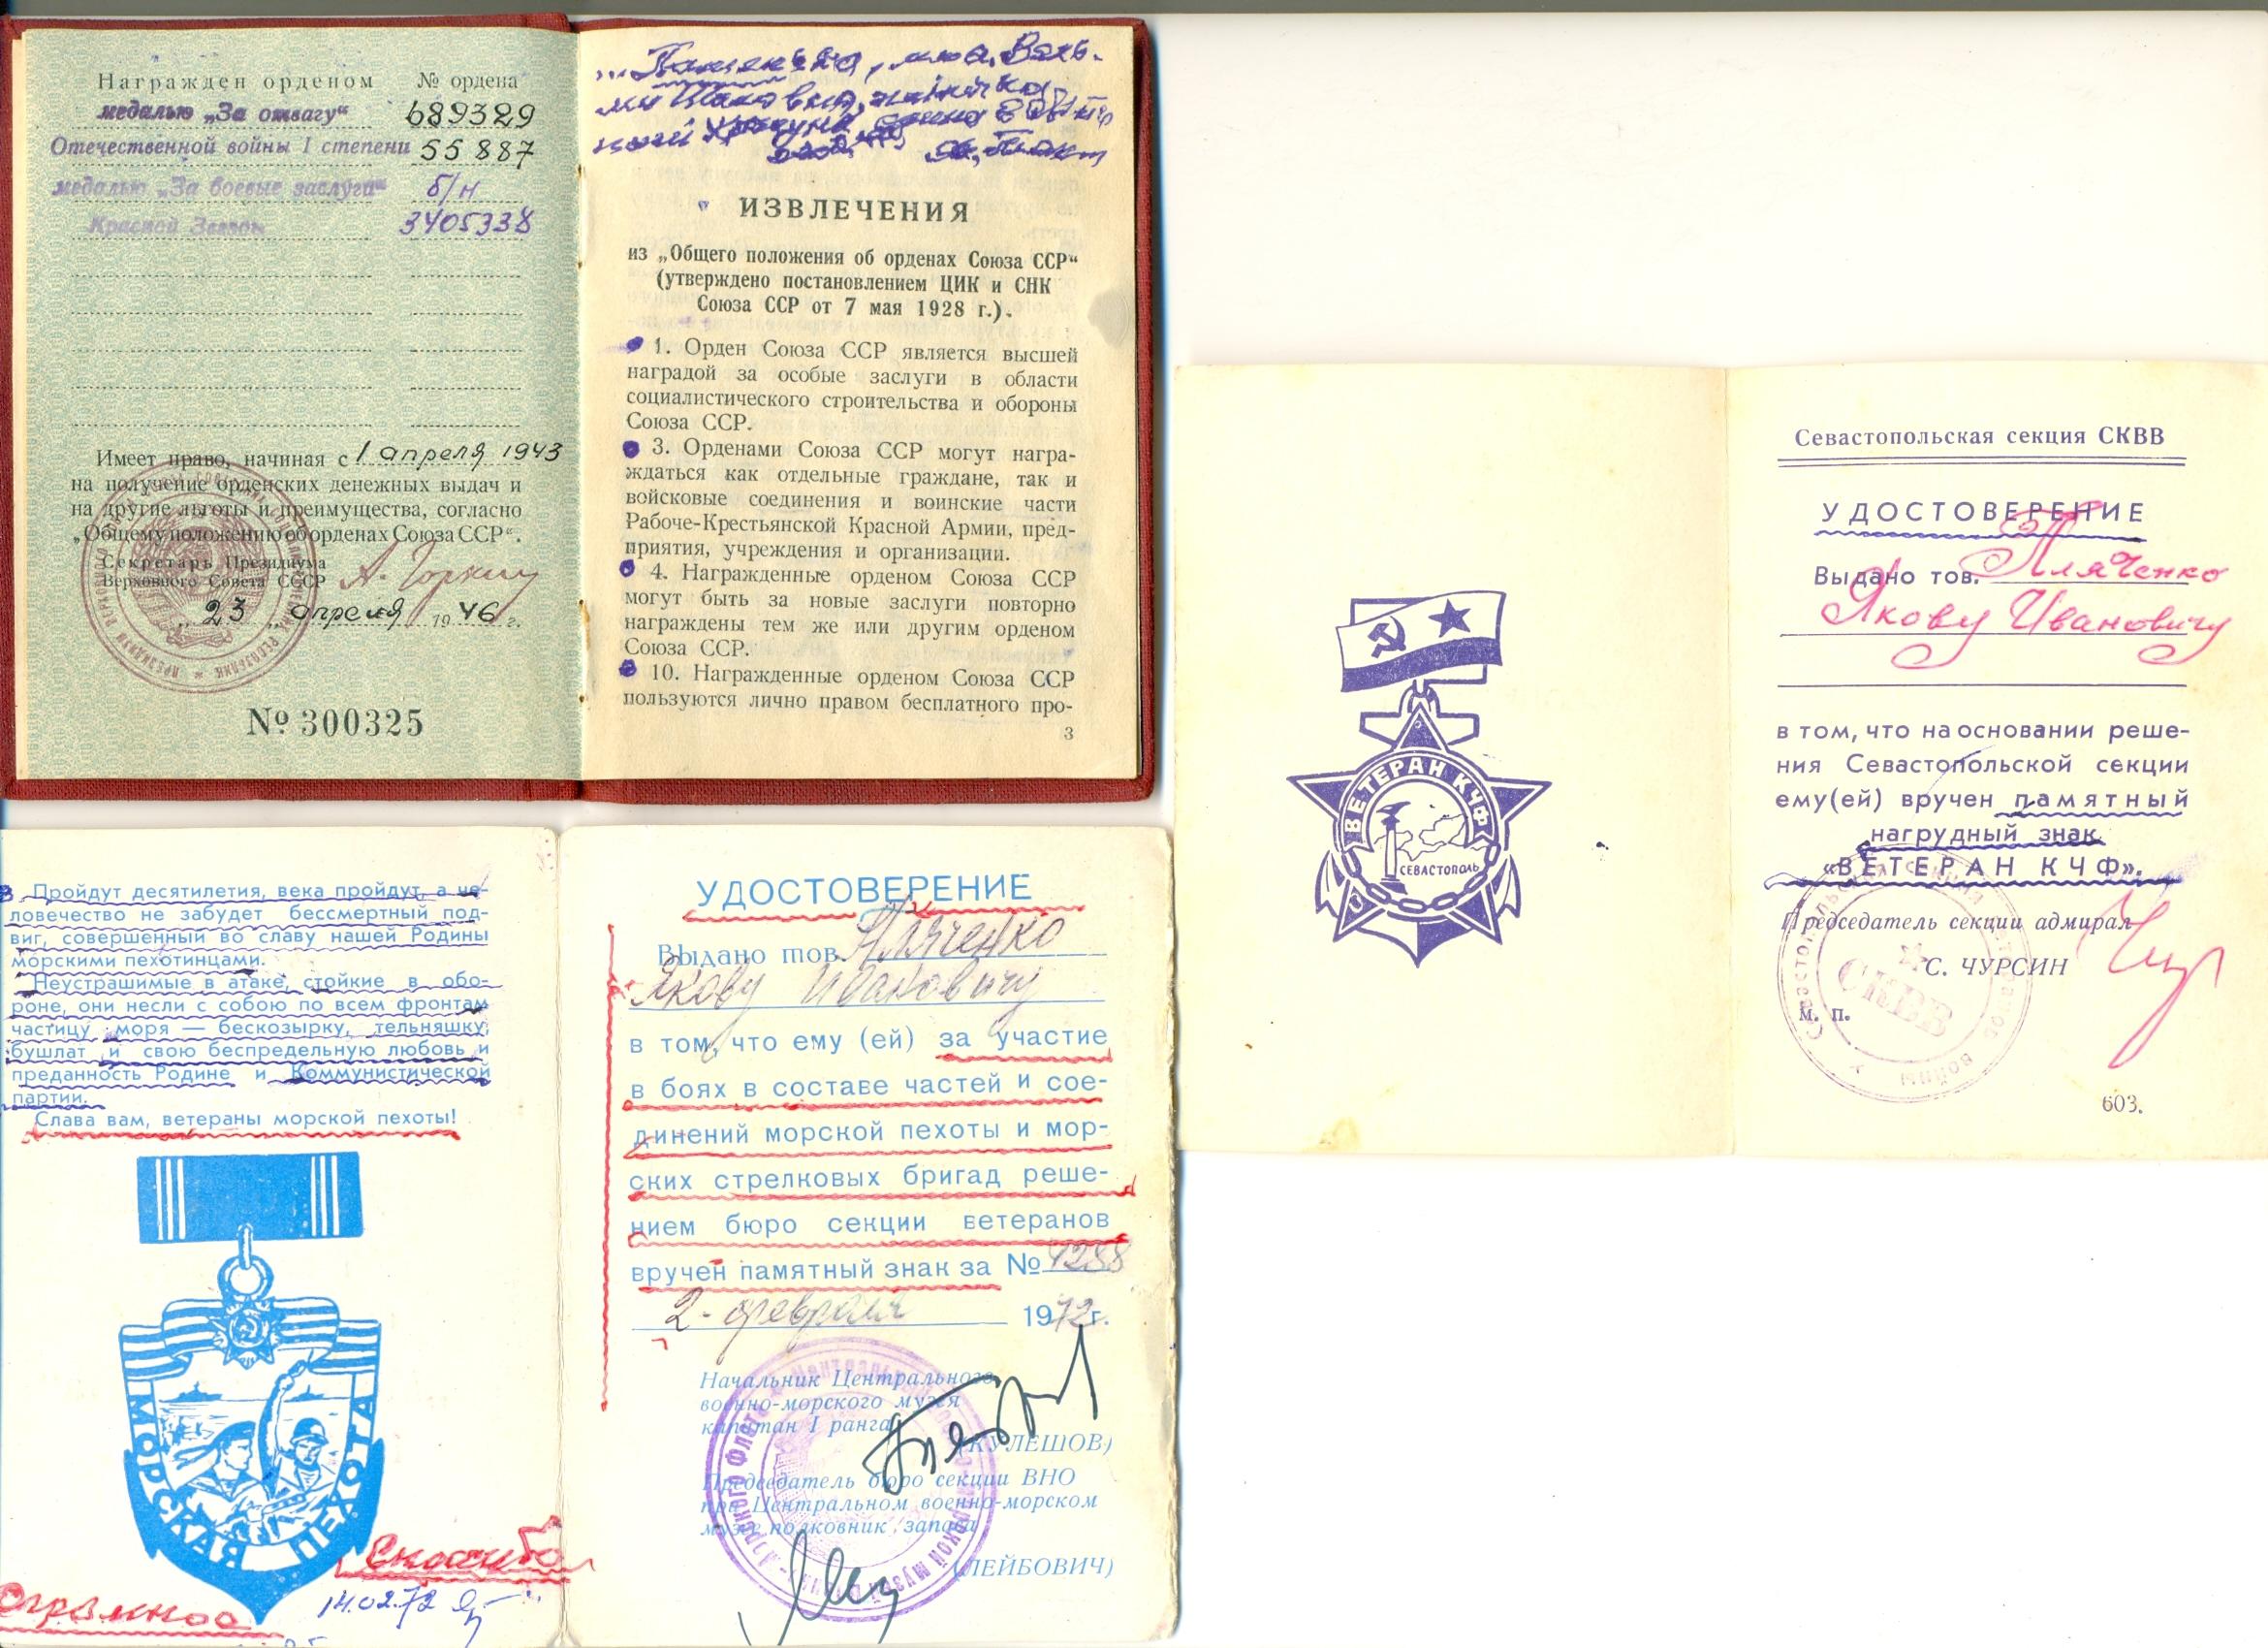 Награжден орденом № ордена
медалью „За отвагу“ 689329
Отечественной войны I степени 55887
медалью „За боевые заслуги“ б/н
Красной Звезды 3405338
Имеет право, начиная с 1 апреля 1943
на получение орденских денежных выдач и
на другие льготы и преимущества, согласно
„Общему положению об орденах Союза ССР“.
Секретарь Президиума
Верховного Совета СССР А. Горкин
„23„ апреля 1946 г.
№ 300325
ИЗВЛЕЧЕНИЯ
из „Общего положения об орденах Союза ССР“
(утверждено постановлением ЦИК и СНК
Союза ССР от 7 мая 1928 г.).
1. Орден Союза ССР является высшей
наградой за особые заслуги в области
социалистического строительства и обороны
Союза ССР.
3. Орденами Союза ССР могут награ-
ждаться как отдельные граждане, так и
войсковые соединения и воинские части
Рабоче-Крестьянской Красной Армии, пред-
приятия, учреждения и организации.
4. Награжденные орденом Союза ССР
могут быть за новые заслуги повторно
награждены тем же или другим орденом
Союза ССР.
10. Награжденные орденом Союза ССР
пользуются лично правом бесплатного про-
3
Пройдут десятилетия, века пройдут, а че-
ловечество не забудет бессмертный под-
виг, совершенный во славу нашей Родины
морскими пехотинцами.
Неустрашимые в атаке, стойкие в обо-
роне, они несли с собою по всем фронтам
частицу моря — бескозырку, тельняшку,
бушлат и свою беспредельную любовь и
преданность Родине и Коммунистической
партии.
Слава вам, ветераны морской пехоты!
МОРСКАЯ ПЕХОТА
Спасибо
Огромное 14.02.72
УДОСТОВЕРЕНИЕ
Выдано тов. Пляченко
Якову Ивановичу
в том, что ему (ей) за участие
в боях в составе частей и сое-
динений морской пехоты и мор-
ских стрелковых бригад реше-
нием бюро секции ветеранов
вручен памятный знак за № 4288
2 - февраля 1972г.
Начальник Центрального
военно-морского музея
капитан I ранга
(КУЛЕШОВ)
Председатель бюро секции ВНО
при Центральном военно-морском
музее полковник запаса
(ЛЕЙБОВИЧ)
ВЕТЕРАН КЧФ
СЕВАСТОПОЛЬ
Севастопольская секция СКВВ
УДОСТОВЕРЕНИЕ
Выдано тов. Пляченко
Якову Ивановичу
в том, что на основании реше-
ния Севастопольской секции
ему(ей) вручен памятный
нагрудный знак
«ВЕТЕРАН КЧФ».
Председатель секции адмирал
С. ЧУРСИН
СКВВ
М. П.
603.